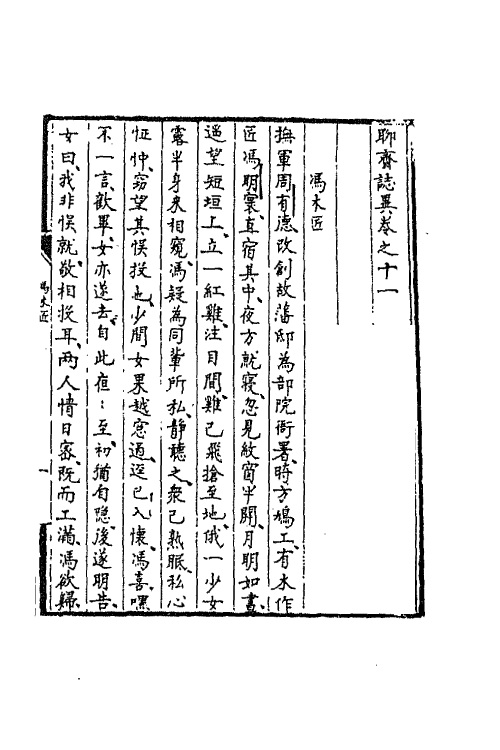 聊齋誌異卷之十一
馮木匠
撫軍周有德改創故藩邸為部院衙署時方鳩工有木作
匠馮明寰直宿其中夜方就寢忽見紋窗半開月明如晝
遥望短垣上立一紅雞注目間雞已飛搶至地俄一少女
露半身來相窺馮疑為同輩所私靜聽之衆已熟眠私心
怔忡竊望其悞投也少間女果越窓過逕已入懷馮喜嘿
不一言歡畢女亦遂去自此夜：至初猶自隐後遂明告
女曰我非悞就敬相投耳两人情日密既而工滿馮欲歸
馮木匠
一